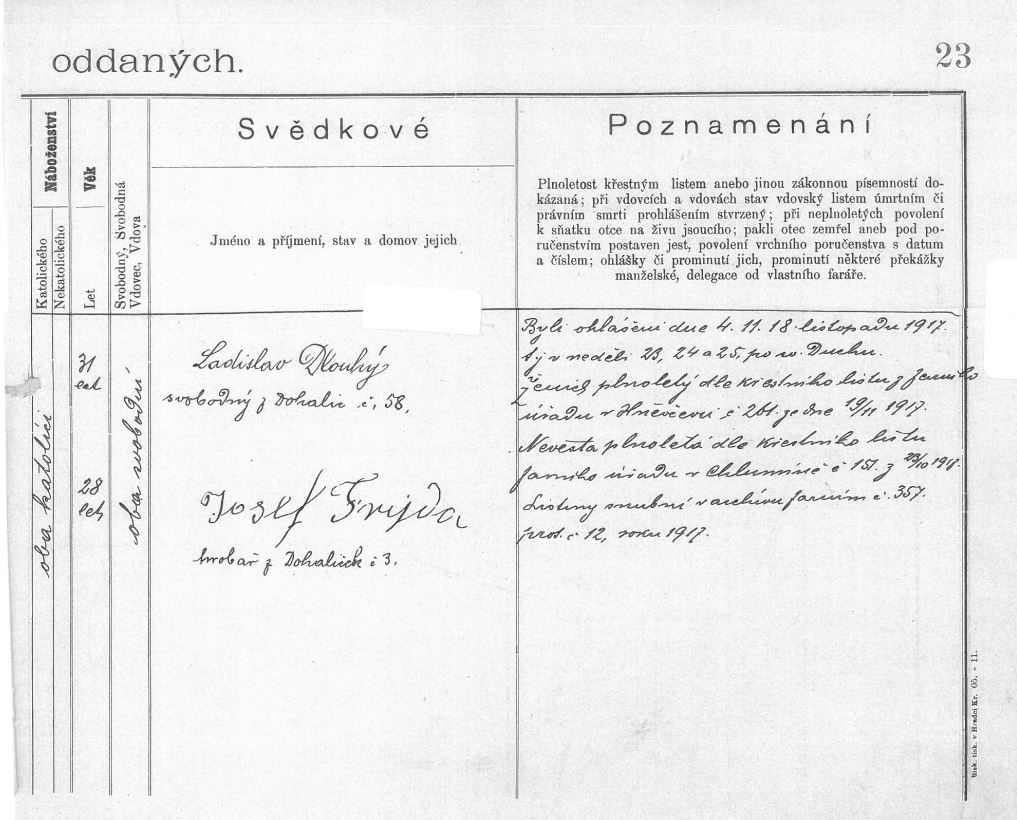 oddaných.
23
Náboženství
Katolického
Nekatolického
Věk
Let
Svobodný, Svobodná
Vdovec, Vdova
Svědkové
Jméno a příjmení, stav a domov jejich
Poznamenání
Plnoletost křestným listem anebo jinou zákonnou písemností do-
kázaná; při vdovcích a vdovách stav vdovský listem úmrtním či
právním smrti prohlášením stvrzený; při neplnoletých povolení
k sňatku otce na živu jsoucího; pakli otec zemřel aneb pod po-
ručenstvím postaven jest, povolení vrchního poručenstva s datum
a číslem; ohlášky či prominutí jich, prominutí některé překážky
manželské, delegace od vlastního faráře.
oba katolíci
31
let
28
let
oba svobodní
Ladislav Dlouhý
svobodný z Dohalic č. 58.
Josef Frýda
hrobař z Dohaliček č 3.
Byli ohlášeni dne 4. 11. 18. listopadu 1917.
t.j. v neděli 23, 24 a 25, po sv. Duchu.
Ženich plnoletý dle křestního listu z farního
úřadu v Hněvčevsi č 261. ze dne 19/11 1917.
Nevěsta plnoletá dle křestního listu
farního úřadu v Chlumíně č 151. z 23/10 1917.
Listiny snubní v archivu farním č. 357.
prot. č 12, roku 1917.
Bisk. tisk. v Hradci Kr. 05. - 11.